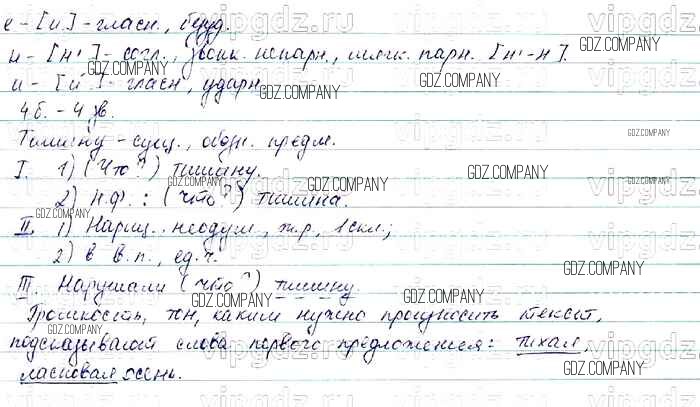 е - [и] - гласн., безуд.
н - [н'] - согл., звонк. непарн., мягк. парн. [н'-н].
и - [и́] - гласн., ударн.
4 б. - 4 зв.
Тишину - сущ., обозн. предм.
I. 1) (Что?) тишину.
2) н.ф.: (что?) тишина.
II. 1) Нариц., неодуш., ж.р., 1 скл.;
2) в В.п., ед.ч.
III. Нарушали (что?) тишину.
Громкость, тон, каким нужно произносить текст,
подсказывают слова первого предложения: тихая,
ласковая осень.
GDZ.COMPANY
vipgdz.ru